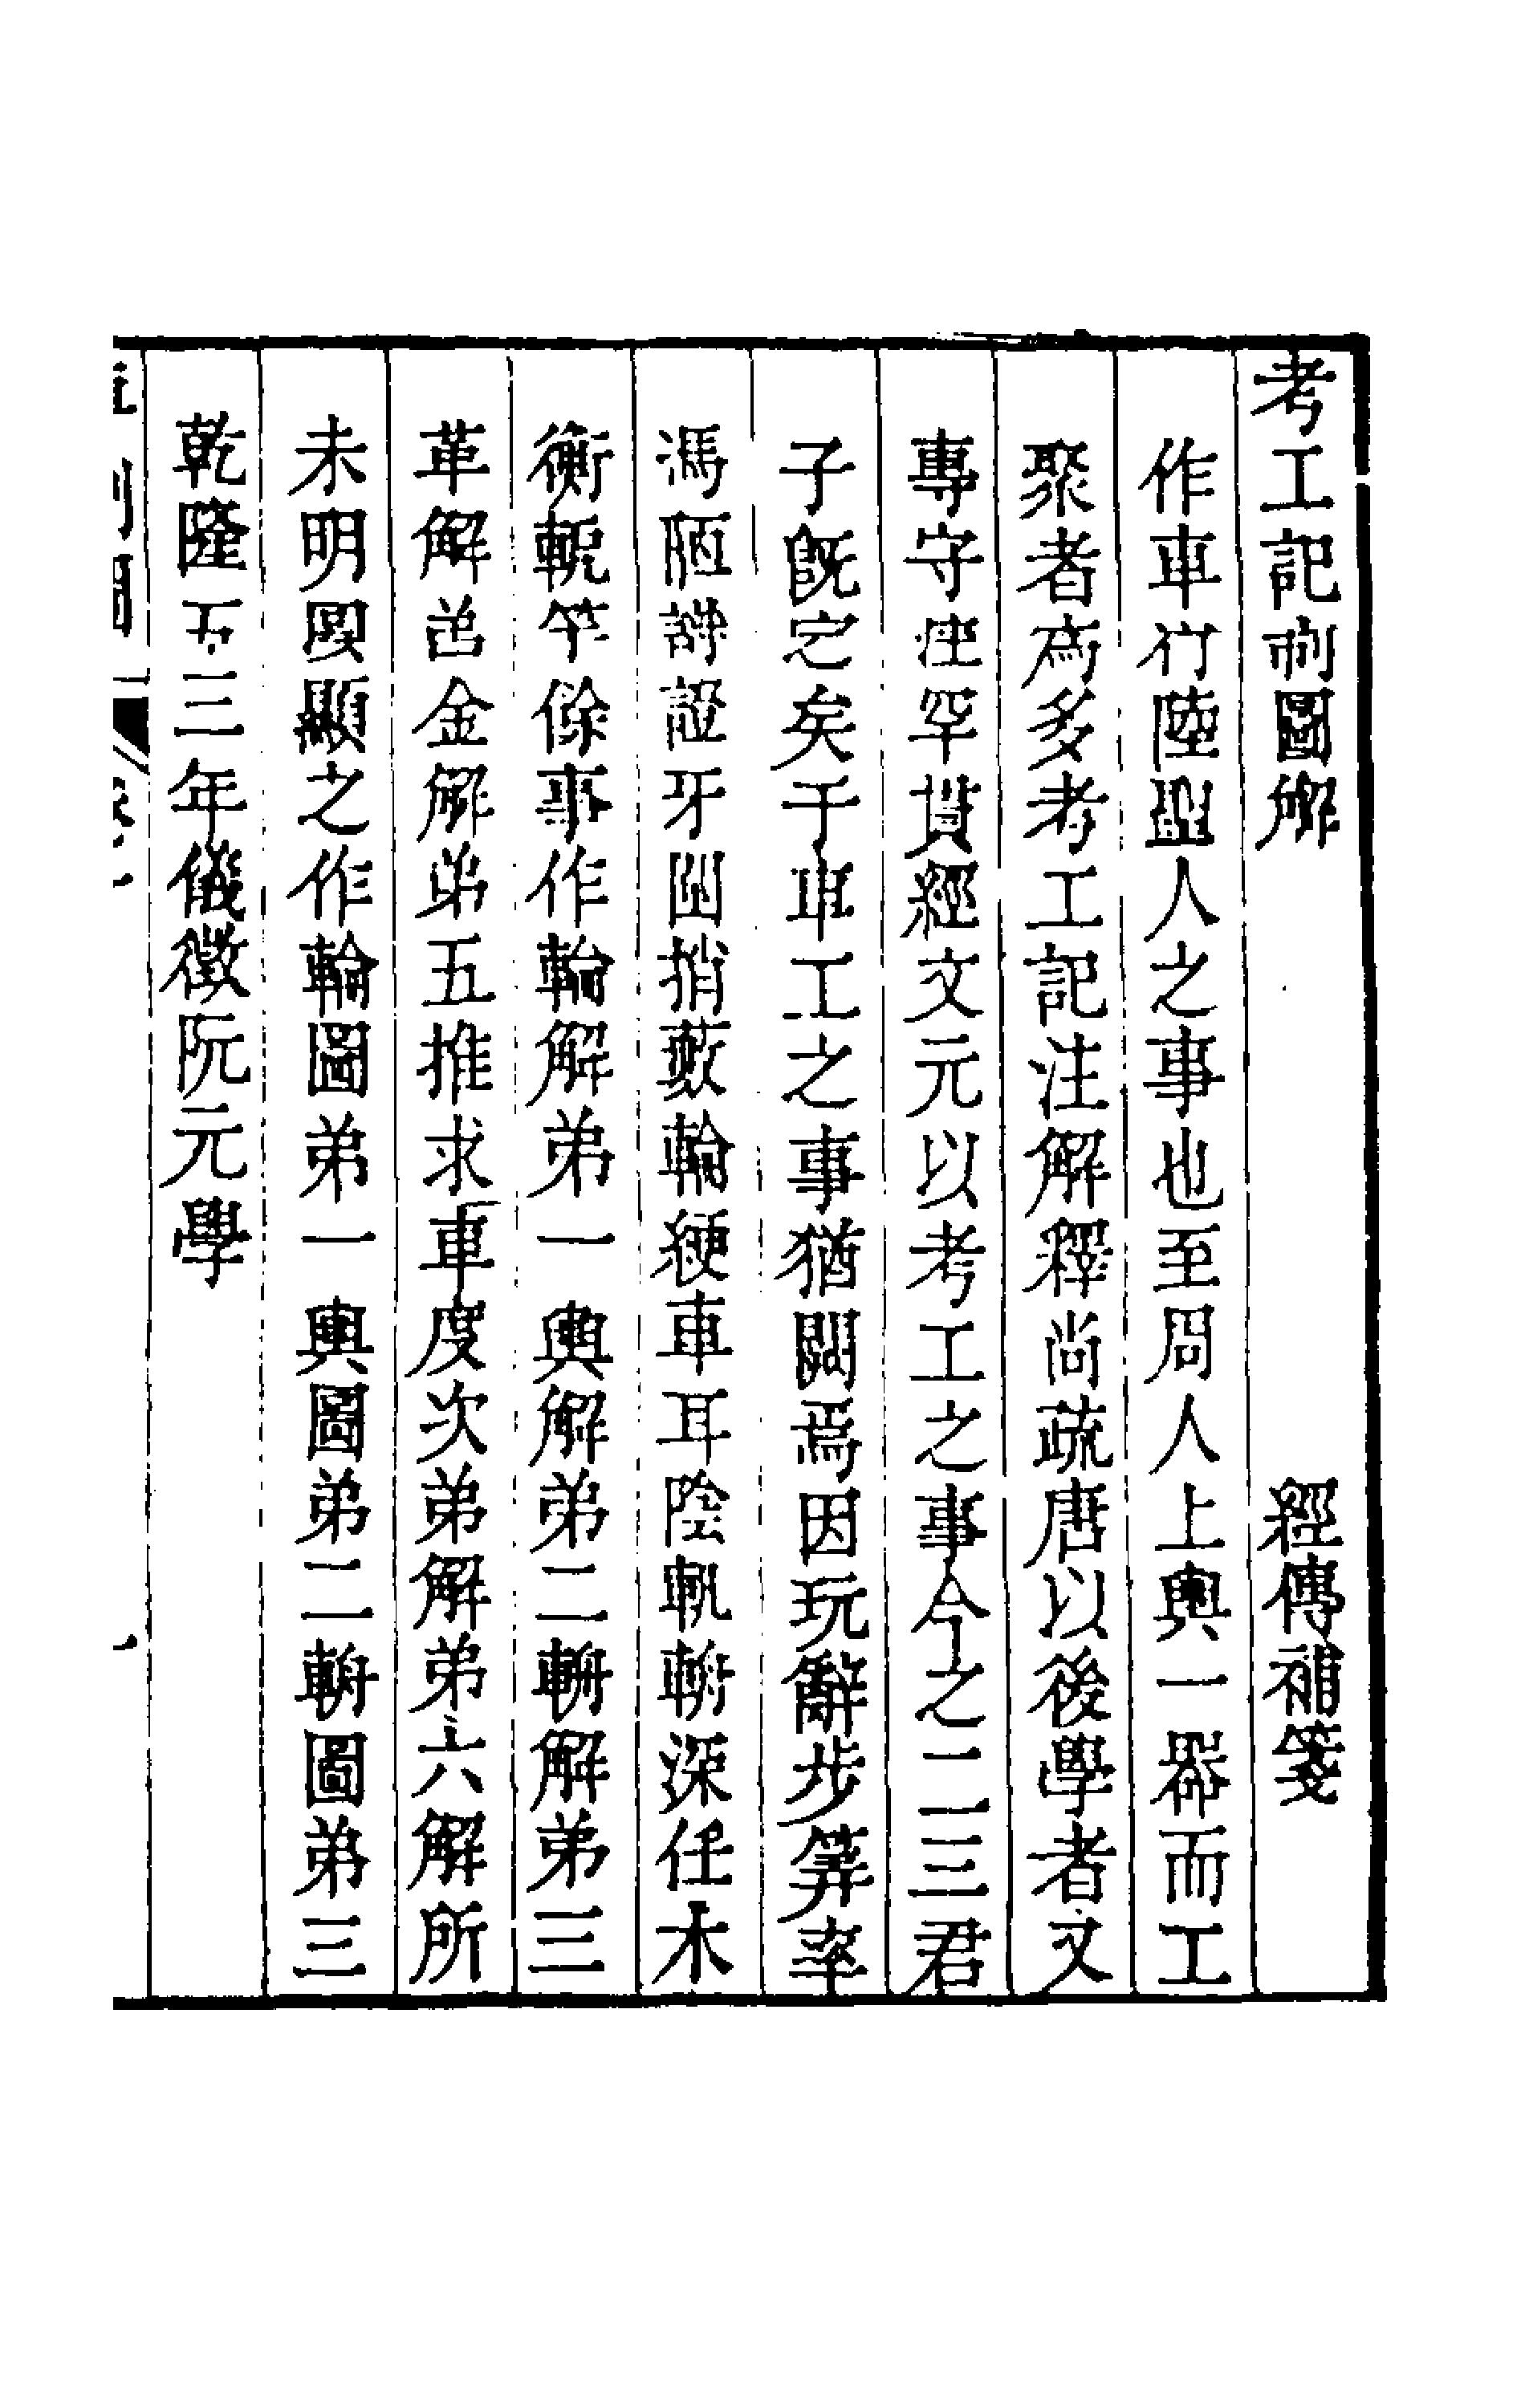 考工記制圖解 經傳補箋
作車行陸聖人之事也至周人上輿一器而工
聚者爲多考工記注解釋尚疏唐以後學者又
專守注罕貫經文元以考工之事今之二三君
子旣定矣于車工之事猶闕焉因玩辭步算率
馮陋證牙圍捎藪輪綆車耳陰軓輈深任木
衡軶等餘事作輪解弟一輿解弟二輈解弟三
革解金解弟五推求車度次弟解弟六解所
未明圖顯之作輪圖弟一輿圖弟二輈圖弟三
乾隆五三年儀徵阮元學